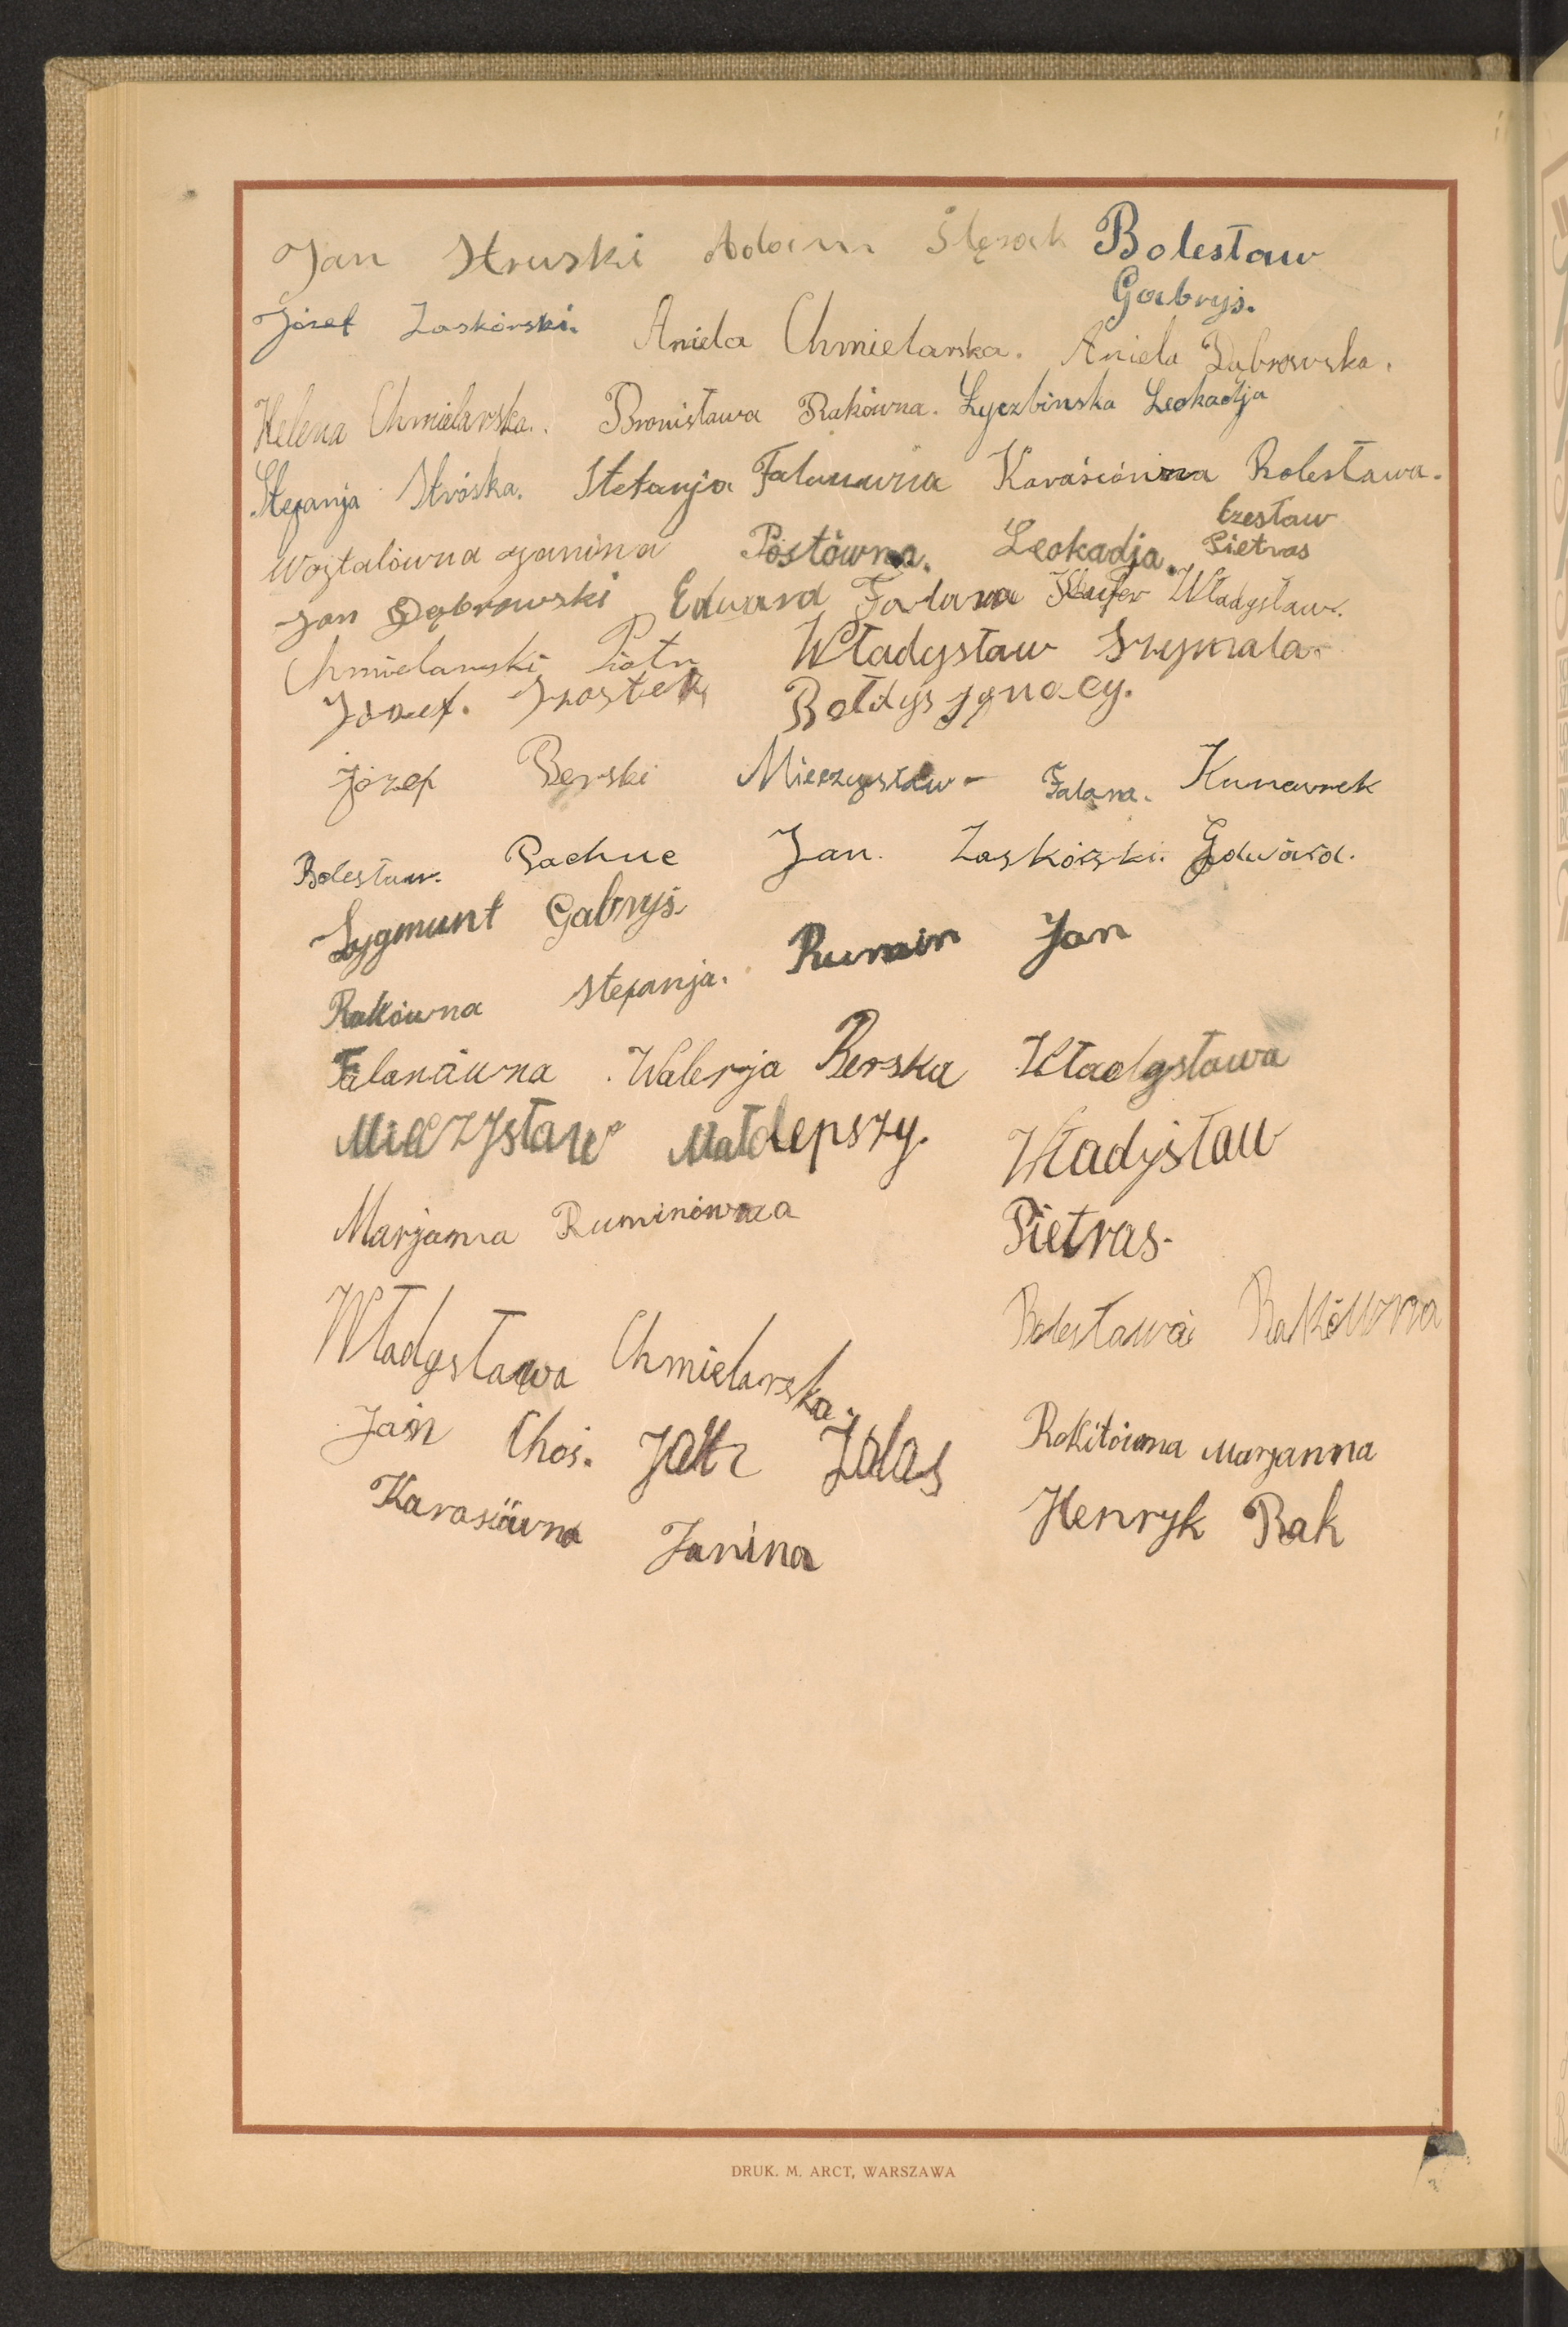 Jan Struski Adam Ślęzak Bolesław
Gabryś.
Józef Zaskórski. Aniela Chmielarska. Aniela Dąbrowska.
Helena Chmielarska. Bronisława Rakówna. Łyczbinska Leokadja
Stefanja Stróska. Stefanja Falanówna Karasiówna Bolesława.
Wojtalówna Janina Postówna. Leokadja. Czesław
Pietras
Jan Dąbrowski Edward Falana Władysław.
Chmielarski Piotr Władysław Szymala
Józef. Bołdys Ignacy.
Józef Berski Mieczysław Falana. Kunawrek
Bolesław. Pachuc Jan. Zaskórski. Edward.
Zygmunt Gabryś
Rakówna Stefanja. Rumin Jan
Falanówna Walerja Berska Władysława
Mieczysław Małolepszy. Władysław
Marjanna Ruminówna Pietras.
Władysława Chmielarska. Bolesława Rakówna
Jan Choś. Jan Zalas Rokitówna Marjanna
Karasiówna Janina Henryk Rak
DRUK. M. ARCT, WARSZAWA